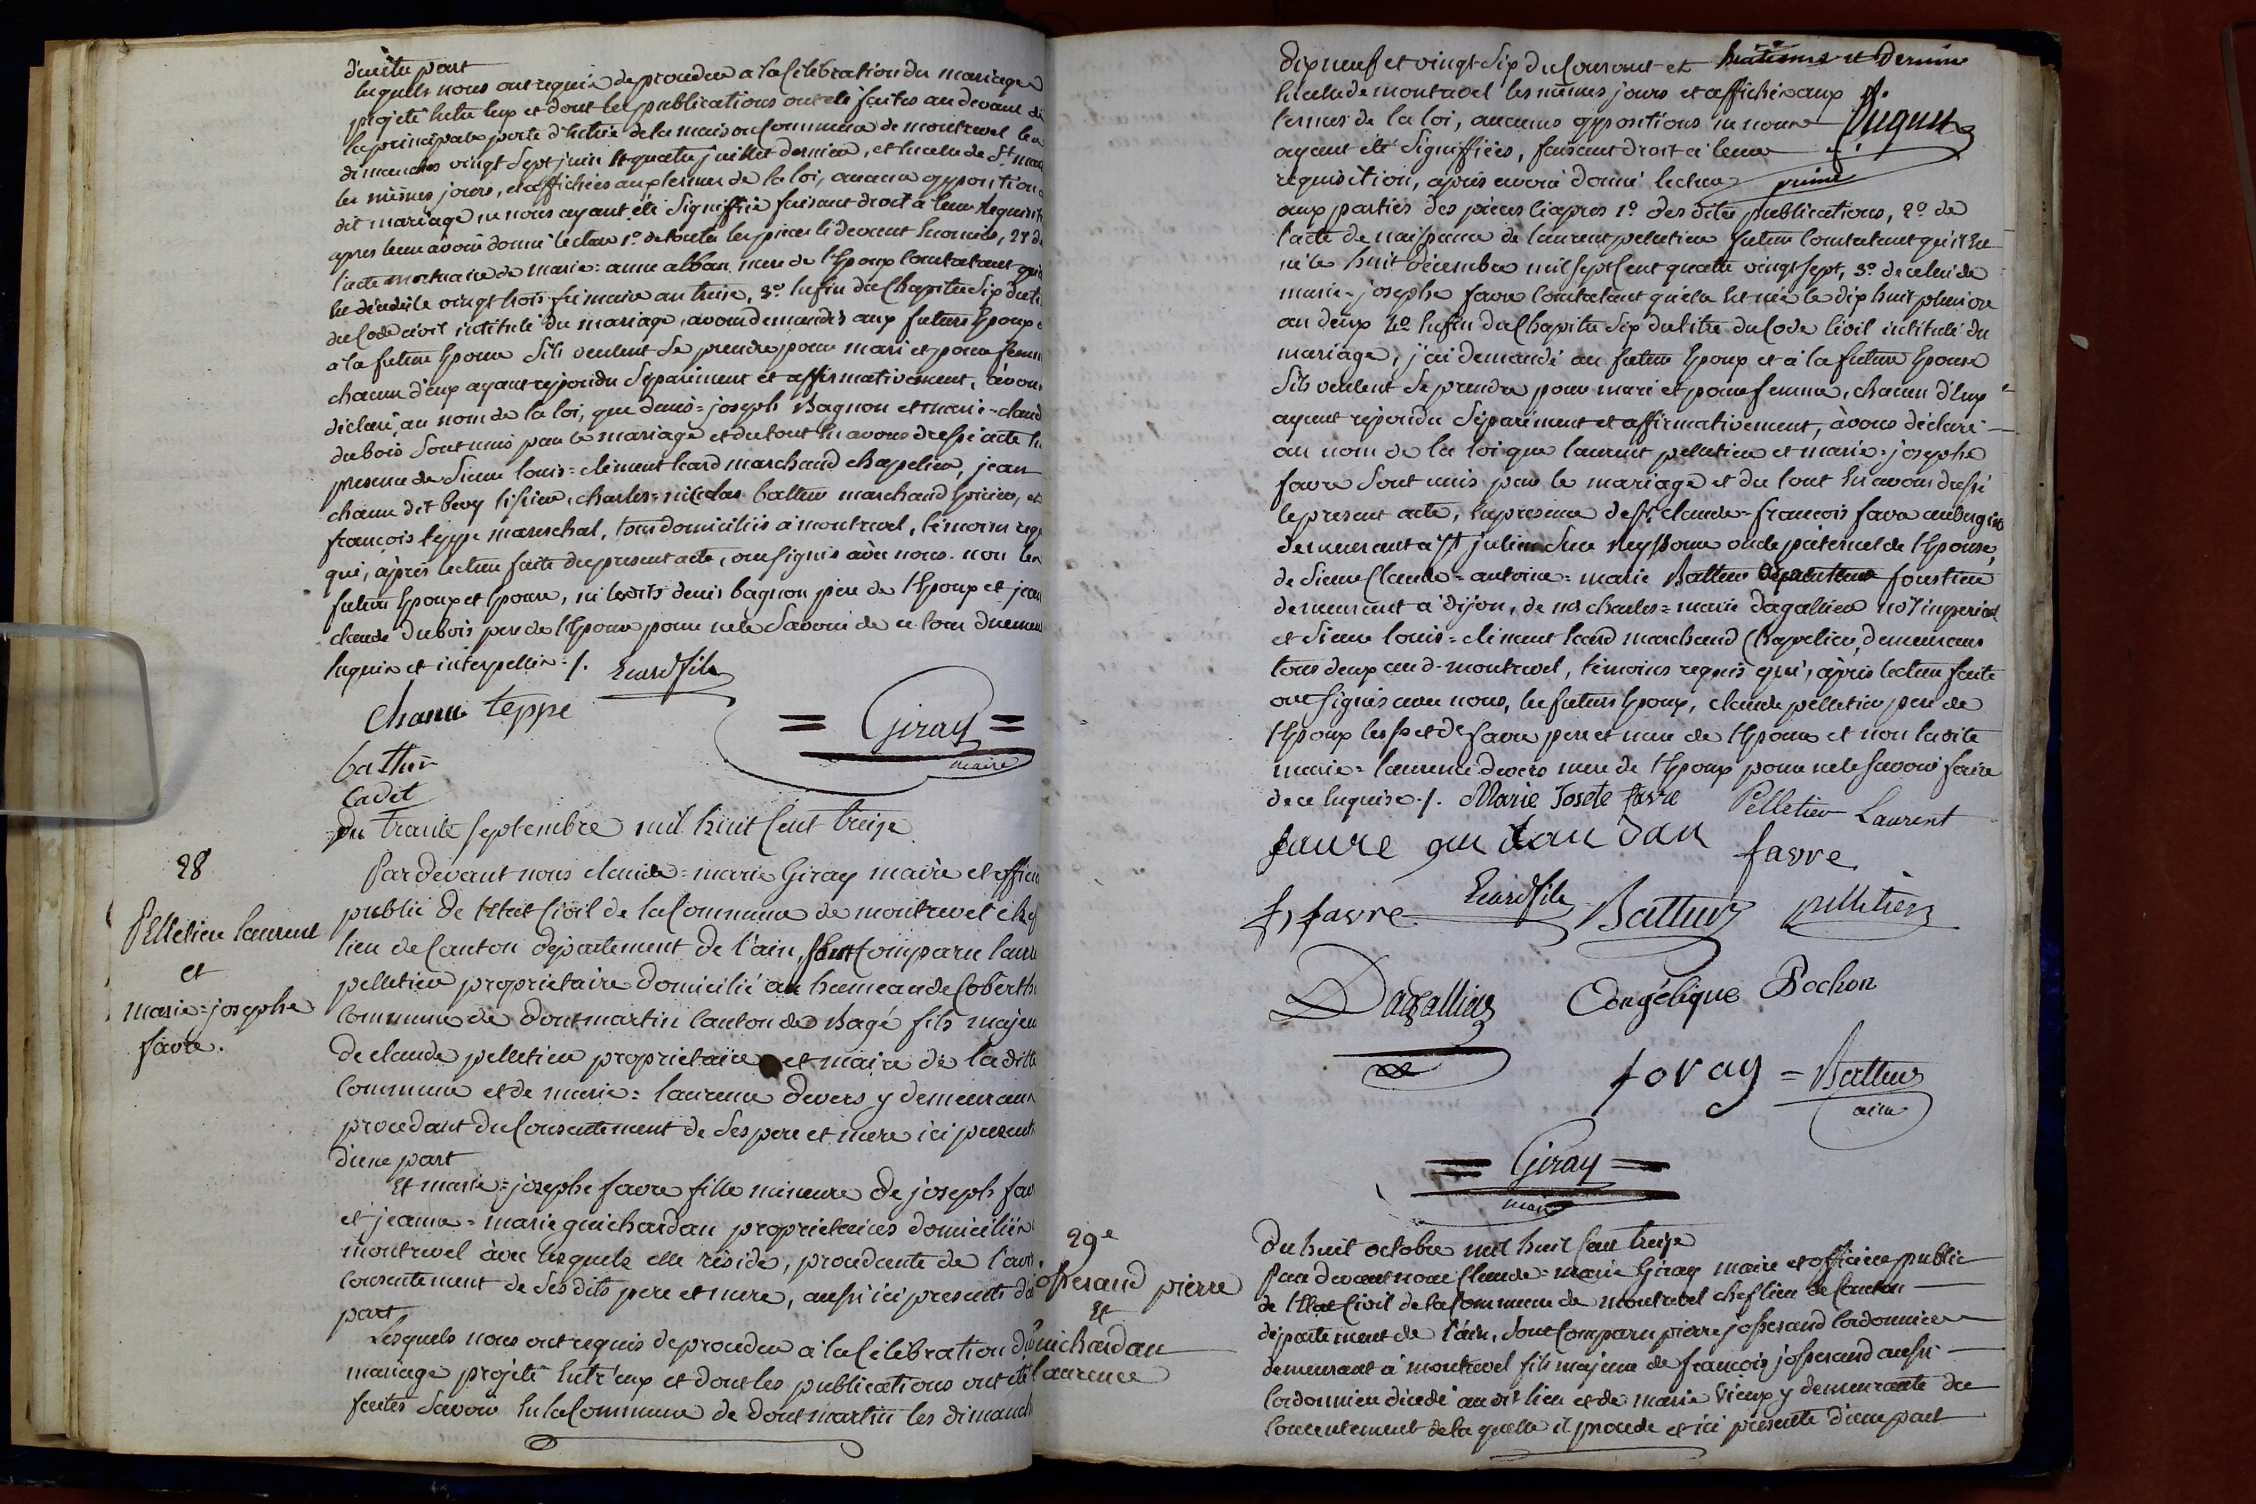 d'autre part
lesquels nous ont requis de proceder a la Célébration du mariage
projeté entre eux et dont les publications ont été faites au devant de
la principale porte d'entrée de la maison Commune de montrevel les
dimanches vingt Sept juin et quatre juillet dernier, et en celle de St
les mêmes jours, et affichées aux termes de la loi, aucune opposition
dit mariage ne nous ayant été Signiffiée faisant droit à leur Requisit
apres leur avoir donné lecture 1o de toutes les pieces ci devant Enoncées, 2o de
l'acte mortuaire de marie=anne alban mere de l'Epoux Constatant qu'
est décédée le vingt trois frimaire an treize, 3o Enfin du Chapitre Six du ti
du Code civil intitulé du mariage, avons demandés aux futurs Epoux
a la future Epouse S'ils veulent Se prendre pour mari et pour femm
chacun d'eux ayant repondu Séparément et affirmativement, avons
déclaré, au nom de la loi, que denis=joseph Bagnon et marie=claud
dubois Sont unis par le mariage et du tout En avons dressé acte En
presence de Sieur louis=clément Ecard marchand chapelier, jean
chanu dit bevy tissier, charles=nicolas batteur marchand Epicier, et
françois teppe mareschal, tous domiciliés a montrevel, témoins req
qui, après lecture faite du present acte, ont Signés avec nous. non les
futurs Epoux et Epouse, ni lesdits denis bagnon pere de l'Epoux et jean
claude dubois pere de l'Epouse pour ne le Savoir de ce tous duement
Enquis et interpellés ./. Ecard fils
Chanu teppe
= Giray =
maire
batteur
Cadet
du trante septembre mil huit Cent treize
28
Pardevant nous claude=marie Giray maire et offici
public de l'Etat Civil de la Commune de montrevel chef
Pelletier laurent
lieu de Canton département de l'ain, Sont Comparu laure
et
pelletier propriétaire domicilié au hameau de Coberth
marie=josephe
Commune de domtmartin Canton de Bagé fils majeu
favre.
de claude pelletier propriétaire et maire de la ditte
Commune et de marie=laurence devers y demeurant
procedant du Consentement de Ses pere et mere ici presents
d'une part
Et marie=josephe favre fille mineure de joseph fav
et jeanne=marie guichardan propriétaires domiciliés
montrevel avec lesquels elle réside, procedante de l'avis
Consentement de Sesdits pere et mere, aussi ici presents d'a
part
Lesquels nous ont requis de proceder a la Célébration du
mariage projeté Entr'eux et dont les publications ont été
faites Savoir En la Commune de domtmartin les dimanch
dix neuf et vingt Six du Courant et et dernier
En celle de montrevel les mêmes jours et affichées aux
termes de la loi, aucunes oppositions ne nous
ayant été Signiffiées, faisant droit à leur
requisition, après avoir donné lecture
aux parties des pieces ci apres 1o des dites publications, 2o de
l'acte de naissance de laurent pelletier futur Constatant qu'il Est
né le huit décembre mil Sept Cent quatre vingt Sept, 3o de celui de
marie=josephe favre Constatant qu'elle Est née le dix huit pluviose
an deux 4o Enfin du Chapitre Six du titre du Code Civil intitulé du
mariage, j'ai demandé au futur Epoux et à la future Epouse
S'ils veulent Se prendre pour mari et pour femme, chacun d'Eux
ayant répondu Séparément et affirmativement, avons déclaré
au nom de la loi que laurent pelletier et marie=josephe
favre Sont unis par le mariage et du tout En avons dressé
le present acte, En presence de Sr. claude=françois favre aubergiste
demeurant a St julien Sur reyssouse oncle paternel de l'Epouse,
de Sieur Claude=antoine=marie Batteur foustier
demeurant a dijon, de mr charles=marie dagallier not. imperial
et Sieur louis=clément Ecard marchand Chapelier, demeurans
tous deux aud. montrevel, témoins requis qui, après lecture faite
ont Signés avec nous, les futurs Epoux, claude pelletier pere de
l'Epoux les Sr et De favre pere et mere de l'Epouse et non ladite
marie=laurence devers mere de l'Epoux pour ne le Savoir faire
de ce Enquise ./. Marie Josete favre Pelletier Laurent
favre guichardan favre
f, favre Ecard fils Batteur pelletier
Dagallier Angélique Bochon
foray = Batteur
ainé
= Giray =
maire
29e
du huit octobre mil huit Cent treize
josserand pierre
Par devant nous Claude=marie Giray maire et officier public
Et
de l'Etat Civil de la Commune de montrevel chef lieu de Canton
guichardan
département de l'ain, Sont Comparu pierre josserand Cordonnier
laurence
demeurant à montrevel fils majeur de françois josserand aussi
Cordonnier décédé au dit lieu et de marie Vieux y demeurante du
Consentement de la quelle il procede et ici presente d'une part